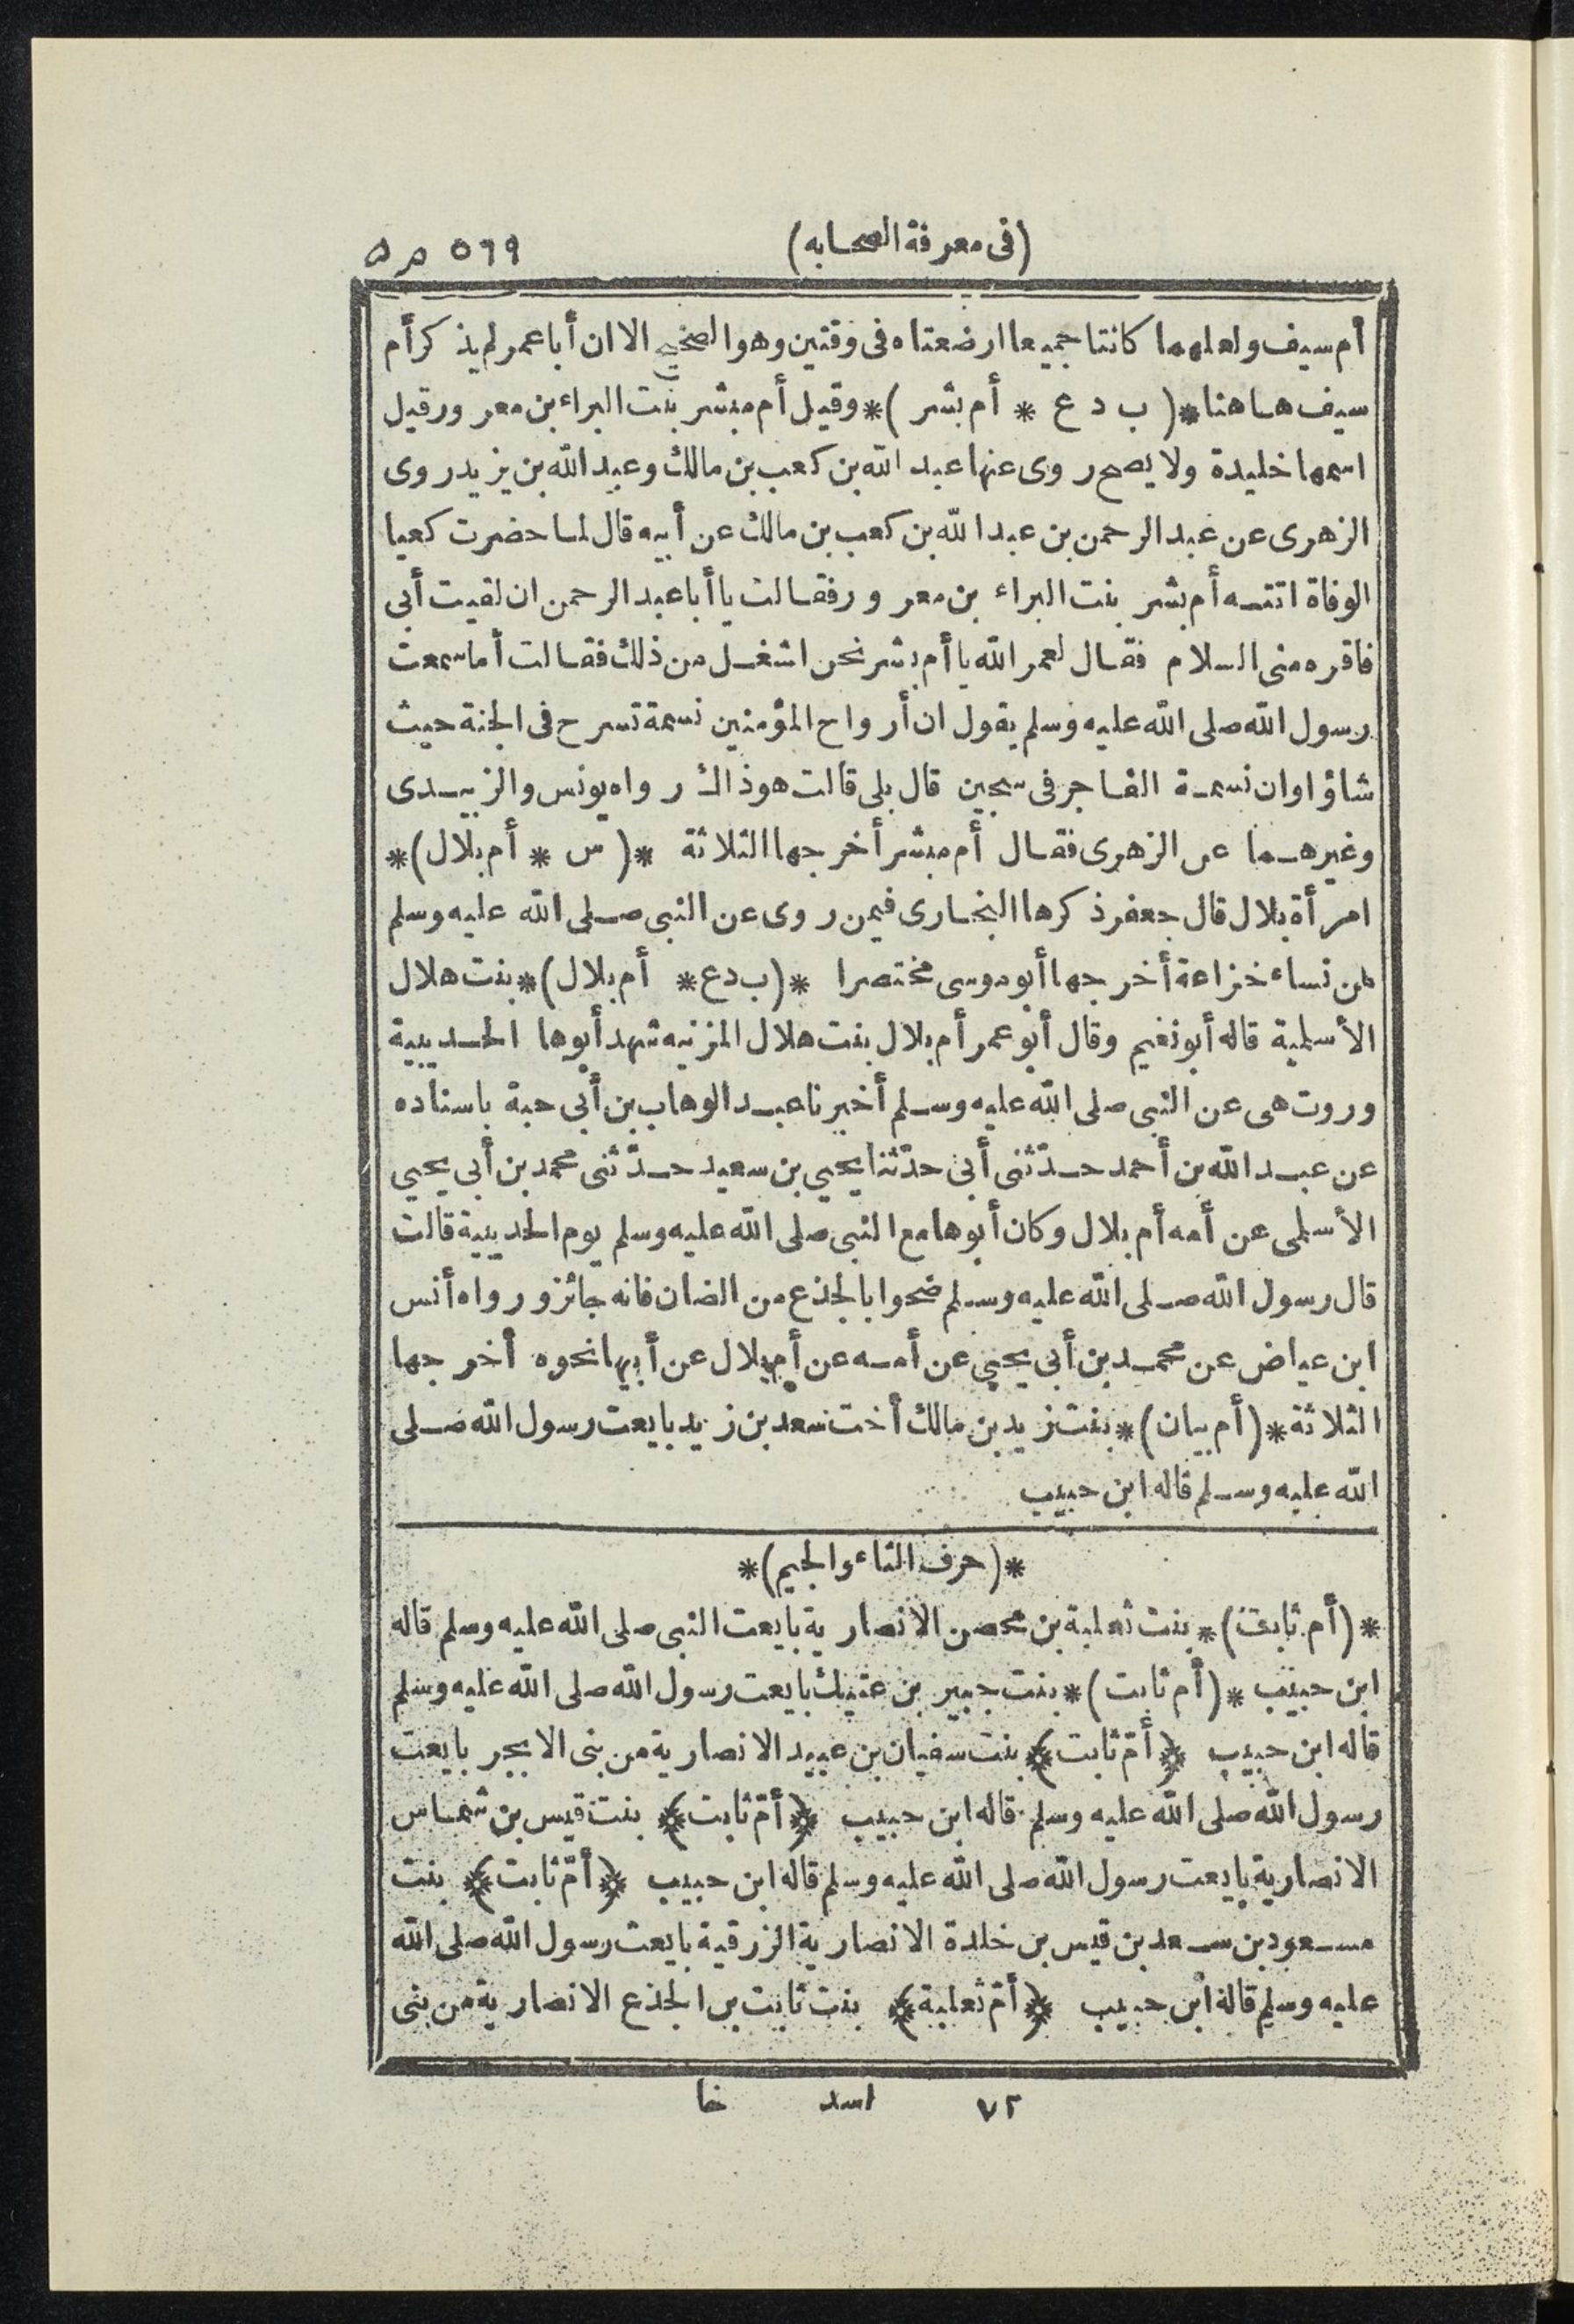 (فى معرفة الصحابه) ٥٦٩
أم سيف ولعلهما كانتا جميعا ارضعتاه فى وقتين وهو الصحيح الا ان أبا عمر لم يذكر أم
سيف هاهنا *( ب د ع * أم بشر )* وقيل أم مبشر بنت البراء بن معرور قيل
اسمها خليدة ولا يصح روى عنها عبد الله بن كعب بن مالك وعبد الله بن يزيد روى
الزهرى عن عبد الرحمن بن عبد الله بن كعب بن مالك عن أبيه قال لما حضرت كعبا
الوفاة اتته أم بشر بنت البراء بن معرور فقالت يا أبا عبد الرحمن ان لقيت أبى
فاقره منى السلام فقال لعمر الله يا أم بشر نحن اشغل من ذلك فقالت أما سمعت
رسول الله صلى الله عليه وسلم يقول ان أرواح المؤمنين نسمة تسرح فى الجنة حيث
شاؤا وان نسمة الفاجر فى سجين قال بلى قالت هو ذاك رواه يونس والزبيدى
وغيرهما عن الزهرى فقال أم مبشر أخرجها الثلاثة *( س * أم بلال )*
امرأة بلال قال جعفر ذكرها البخارى فيمن روى عن النبى صلى الله عليه وسلم
من نساء خزاعة أخرجها أبو موسى مختصرا *( ب د ع * أم بلال )* بنت هلال
الأسلمية قاله أبو نعيم وقال أبو عمر أم بلال بنت هلال المزنيه شهد أبوها الحديبية
وروت هى عن النبى صلى الله عليه وسلم أخبرنا عبد الوهاب بن أبى حبة باسناده
عن عبد الله بن أحمد حدّثنى أبى حدّثنا يحيى بن سعيد حدّثنى محمد بن أبى يحيى
الأسلمى عن أمه أم بلال وكان أبوها مع النبى صلى الله عليه وسلم يوم الحديبية قالت
قال رسول الله صلى الله عليه وسلم ضحوا بالجذع من الضان فانه جائز ورواه أنس
ابن عياض عن محمد بن أبى يحيى عن أمه عن أم بلال عن أبيها نحوه أخرجها
الثلاثة *( أم بيان )* بنت زيد بن مالك أخت سعد بن زيد بايعت رسول الله صلى
الله عليه وسلم قاله ابن حبيب
*( حرف الثاء والجيم )*
*( أم ثابت )* بنت ثعلبة بن محصن الانصارية بايعت النبى صلى الله عليه وسلم قاله
ابن حبيب *( أم ثابت )* بنت جبير بن عتيك بايعت رسول الله صلى الله عليه وسلم
قاله ابن حبيب ﴿أمّ ثابت﴾ بنت سفيان بن عبيد الانصارية من بنى الابجر بايعت
رسول الله صلى الله عليه وسلم قاله ابن حبيب ﴿أمّ ثابت﴾ بنت قيس بن شماس
الانصارية بايعت رسول الله صلى الله عليه وسلم قاله ابن حبيب ﴿أمّ ثابت﴾ بنت
مسعود بن سعد بن قيس بن خلدة الانصارية الزرقية بايعت رسول الله صلى الله
عليه وسلم قاله ابن حبيب ﴿أمّ ثعلبة﴾ بنت ثابت بن الجذع الانصارية من بنى
٧٢ اسد خا